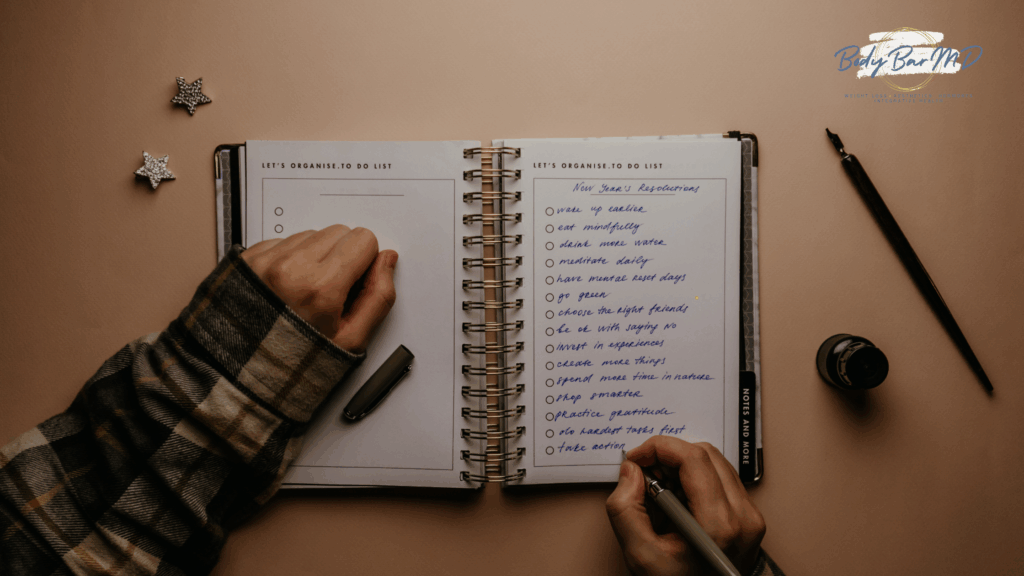 Body Bar MD
LET'S ORGANISE.TO DO LIST
LET'S ORGANISE.TO DO LIST
New Year's Resolutions
wake up earlier
eat mindfully
drink more water
meditate daily
have mental reset days
go green
choose the right friends
be ok with saying no
invest in experiences
create more things
spend more time in nature
shop smarter
practice gratitude
do hardest tasks first
take action
NOTES AND MORE